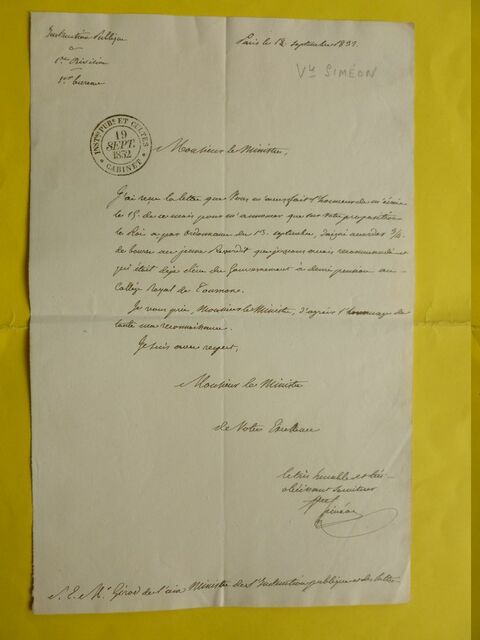 Instruction Publique
1re Division
1er bureau
Paris le 18 septembre 1832.
Vte SIMÉON
INSTon PUBe ET CULTES
19
SEPT.
1832
* CABINET *
Monsieur le Ministre,
J'ai reçu la lettre que Vous m'avez fait l'honneur de m'écrire
le 15 de ce mois pour m'annoncer que sur votre proposition
le Roi a par ordonnance du 13 septembre, daigné accorder 3/4
de bourse au jeune que j'avais recommandé et
qui était déjà élève du Gouvernement à demi pension au
Collège Royal de Tournon.
Je vous prie, Monsieur le Ministre, d'agréer l'hommage de
toute ma reconnaissance.
Je suis avec respect,
Monsieur le Ministre
de Votre Excellence
le très humble et très
obéissant serviteur
Siméon
S. E. Mr Girod de l'ain Ministre de l'Instruction publique et des cultes